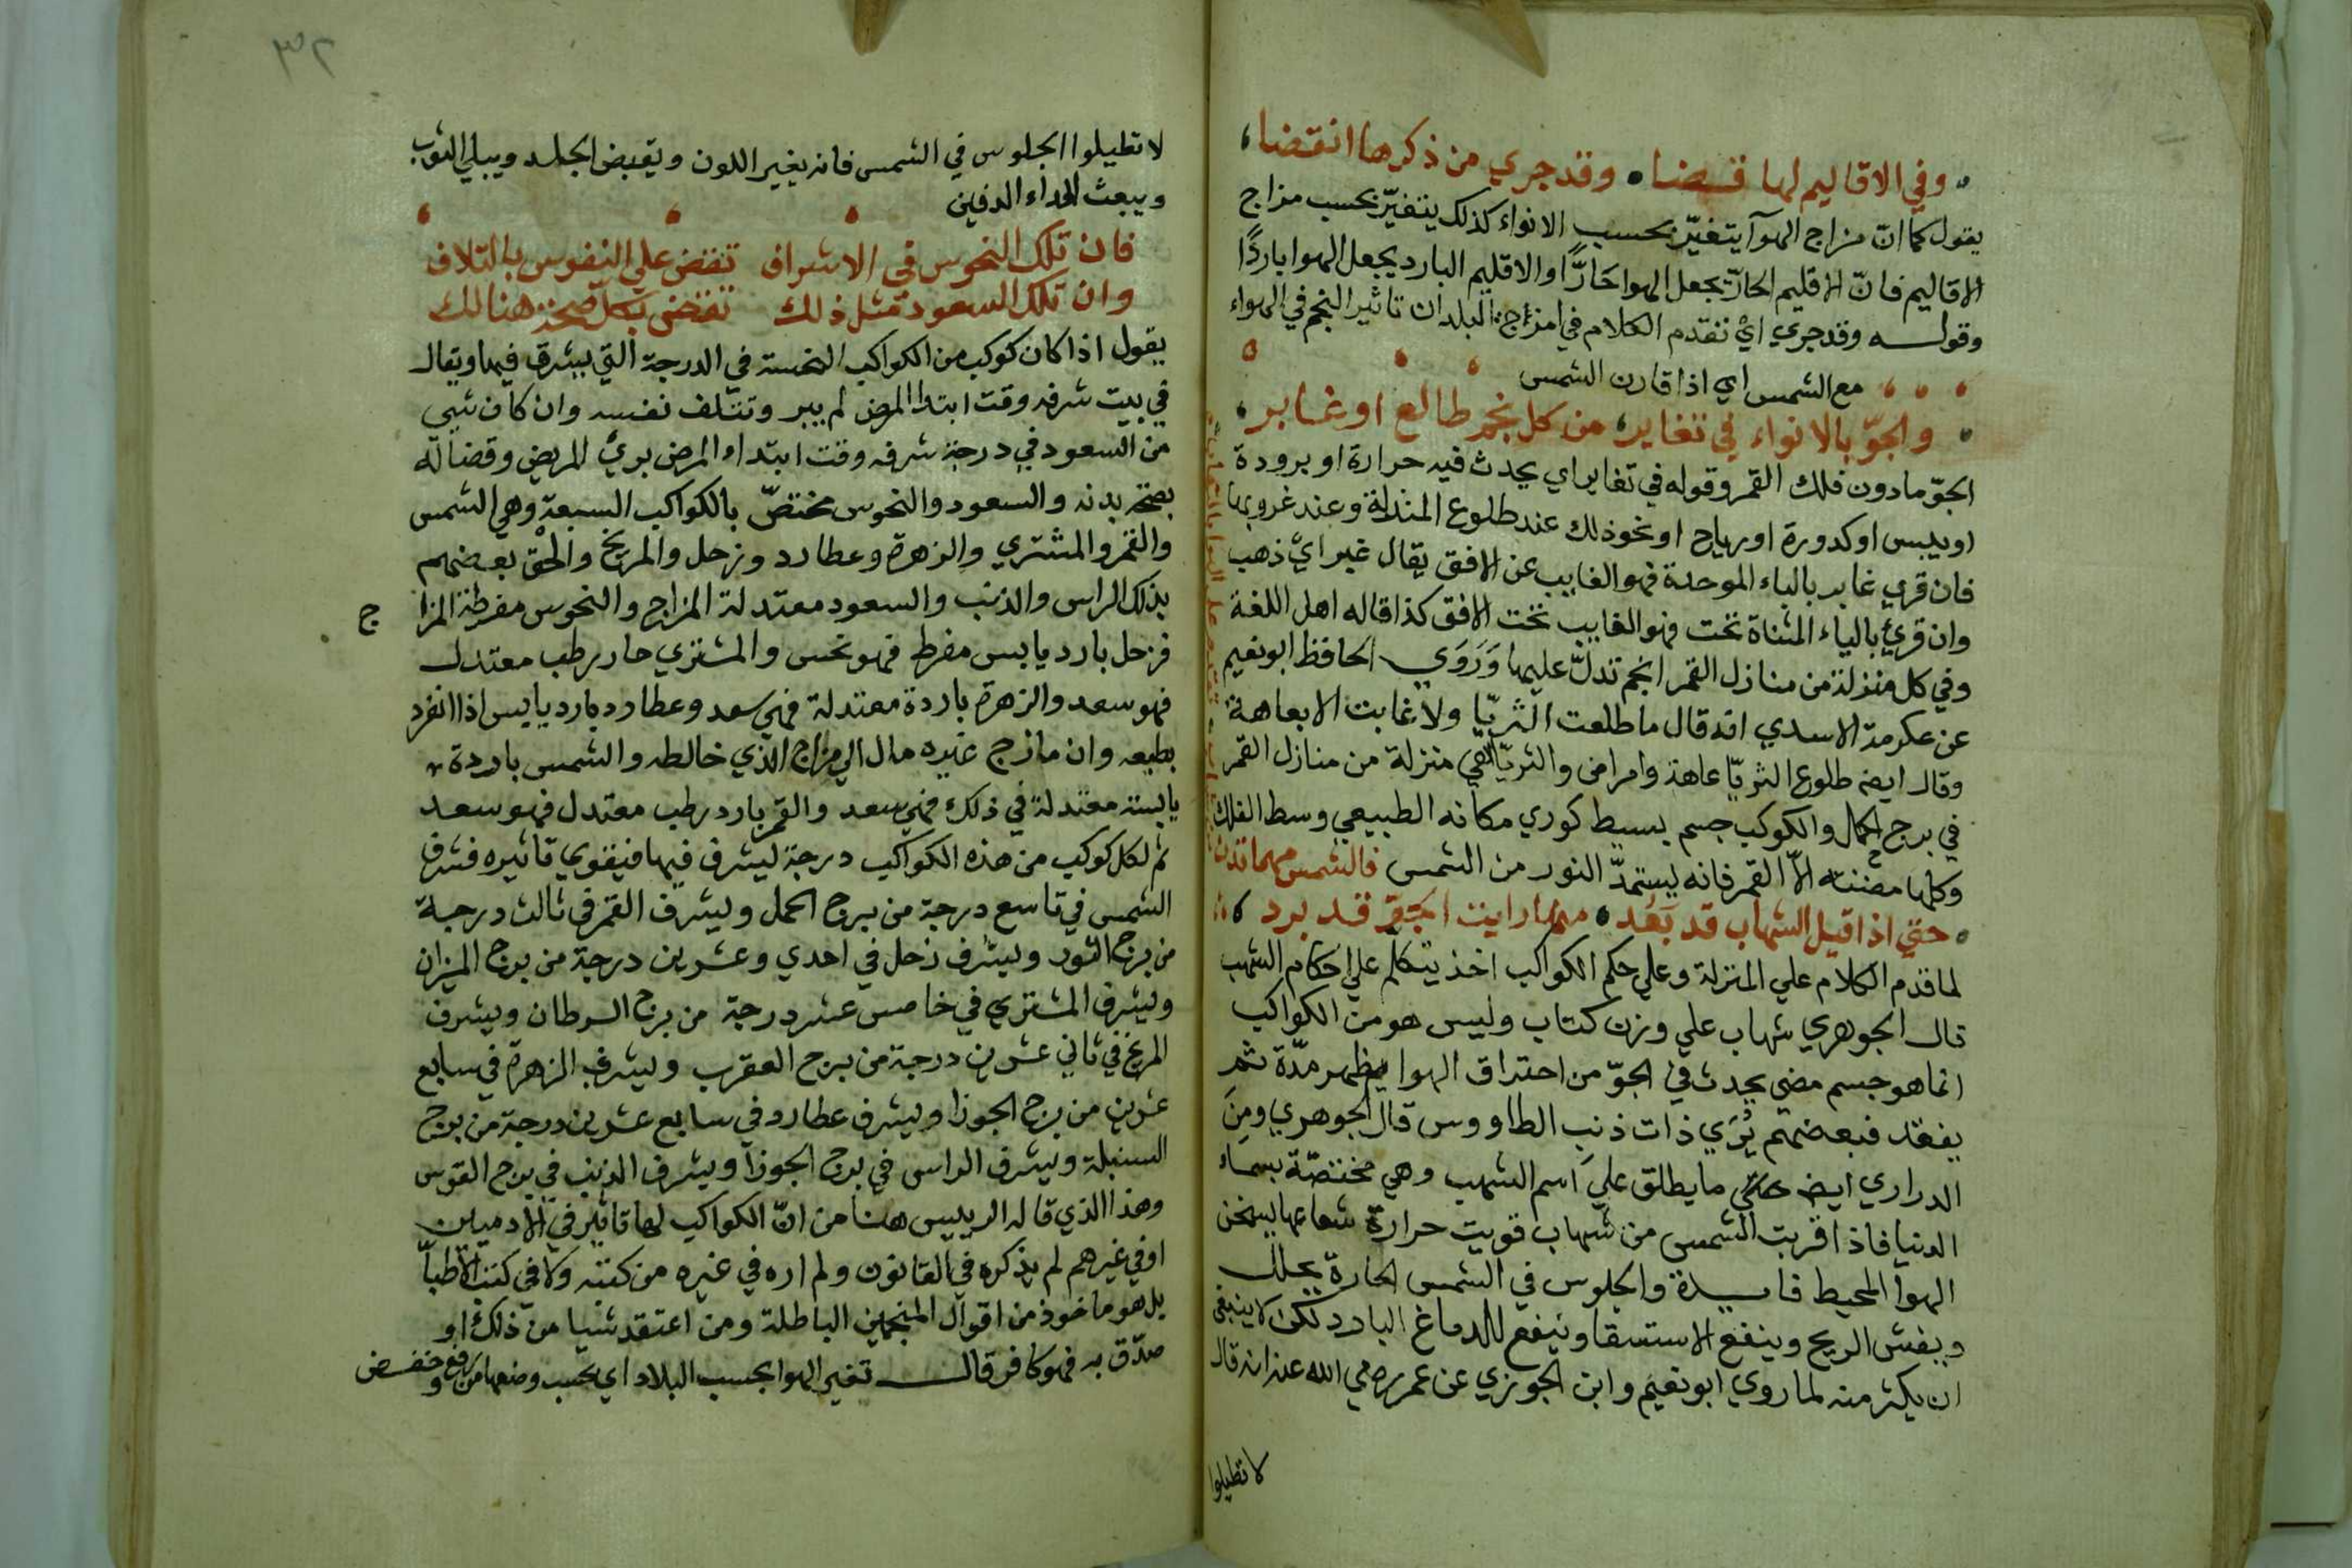 وفي الاقاليم لها قضا وقد جري من ذكرها انقضا
يقول كما ان مزاج الهوآ يتغيّر بحسب الانواء كذلك يتغيّر بحسب مزاج
الاقاليم فانّ الاقليم الحارّ يجعل الهوا حَارًّا او الاقليم البارد يجعل الهوا باردًا
وقوله وقد جري ايْ تقدم الكلام في امزاج البلدان تاثير النجم في الهواء
مع الشمس اي اذا قارن الشمس
والجوّ بالانواء في تغاير من كل نجم طالع او غابر
الجوّ مادون فلك القمر وقوله في تغاير اي يحدث فيه حرارة او برودة
او يبس او كدورة او رياح او نحو ذلك عند طلوع المنذلة وعند غروبها
فان قري غابر بالباء الموحدة فهو الغايب عن الافق يقال غبر ايْ ذهب
وان قرئ بالياء المثناة تحت فهو الغايب تحت الافق كذا قاله اهل اللغة
وفي كل منزلة من منازل القمر انجم تدلّ عليها وَرَوَي الحافظ ابو نعيم
عن عكرمة الاسدي انه قال ما طلعت الثريّا ولا غابت الا بعاهة
وقال ايضا طلوع الثريّا عاهة وامراض والثريّا هي منزلة من منازل القمر
في برج الحمل والكوكب جسم بسيط كوري مكانه الطبيعي وسط الفلك
وكلها مضئة الّا القمر فانه يستمدّ النور من الشمس فالشمس مهما تدن
حتي اذا قيل الشهاب قد بَعُد مهما رايت الجوّ قد برد
لما قدم الكلام علي المنزلة وعلي حكم الكواكب اخذ يتكلم علي احكام الشهب
قال الجوهري شهاب علي وزن كتاب وليس هو من الكواكب
انما هو جسم مضي يحدث في الجوّ من احتراق الهوا يظهر مدّة ثم
يفقد فبعضهم يُرَي ذات ذنب الطاووس قال الجوهري ومِنَ
الدراري ايضا ما يطلق علي اسم الشهب وهي مختصّة بسماء
الدنيا فاذا قربت الشمس من شهاب قويت حرارة شعاعها ليسخن
الهوآ المحيط فايدة والجلوس في الشمس الحارة يحلل
ويفش الريح وينفع الاستسقا وينفع للدماغ البارد لكن لا ينبغي
ان يكثر منه لما روي ابو نعيم وابن الجوزي عن عمر رضي الله عنه انه قال
لا تطيلوا
٣٢
لا تطيلوا الجلوس في الشمس فانه يغير اللون ويقبض الجلد ويبلي الثوب
ويبعث الداء الدفين
فان تلك النحوس في الاشراف تقض علي النفوس بالتلاف
وان تلك السعود مثل ذلك تقض بكل صحة هنالك
يقول اذا كان كوكب من الكواكب النحسة في الدرجة التي يشرف فيها ويقال
في بيت شرفه وقت ابتدا المرض لم يبر وتتلف نفسه وان كان شيي
من السعود في درجة شرفه وقت ابتداء المرض برئ المريض وقضا له
بصحة بدنه والسعود والنحوس مختصّ بالكواكب السبعة وهي الشمس
والقمر والمشتري والزهرة وعطارد وزحل والمريخ والحق بعضهم
بذلك الراس والذنب والسعود معتدلة المزاج والنحوس مفرطة المزا ج
فزحل بارد يابس مفرط فهو نحس والمشتري حار رطب معتدل
فهو سعد والزهرة باردة معتدلة فهي سعد وعطارد بارد يابس اذا انفرد
بطبعه وان مازج غيره مال الي مزاج الذي خالطه والشمس باردة
يابسة معتدلة في ذلك فهي سعد والقمر بارد رطب معتدل فهو سعد
ثم لكل كوكب من هذه الكواكب درجة ليشرف فيها فيقوي تاثيره فشرف
الشمس في تاسع درجة من برج الحمل ويشرف القمر في ثالث درجة
من برج الثور ويشرف زحل في احدي وعشرين درجة من برج الميزان
ويشرف المشتري في خامس عشر درجة من برج السرطان ويشرف
المريخ في ثاني عشرين درجة من برج العقرب ويشرف الزهرة في سابع
عشرين من برج الجوزا ويشرف عطارد في سابع عشرين درجة من برج
السنبلة ويشرف الراس في برج الجوزآ ويشرف الذنب في برج القوس
وهذا الذي قاله الرييس هنا من انّ الكواكب لها تاثير في الادميين
او في غيرهم لم يذكره في القانون ولم اره في غيره من كتبه ولا في كتب الاطبّآ
بل هو ماخوذ من اقوال المنجمين الباطلة ومن اعتقد شيا من ذلك او
صدّق به فهو كافر قال تغير الهوا بحسب البلاد اي بحسب وضعها من رفع وخفض